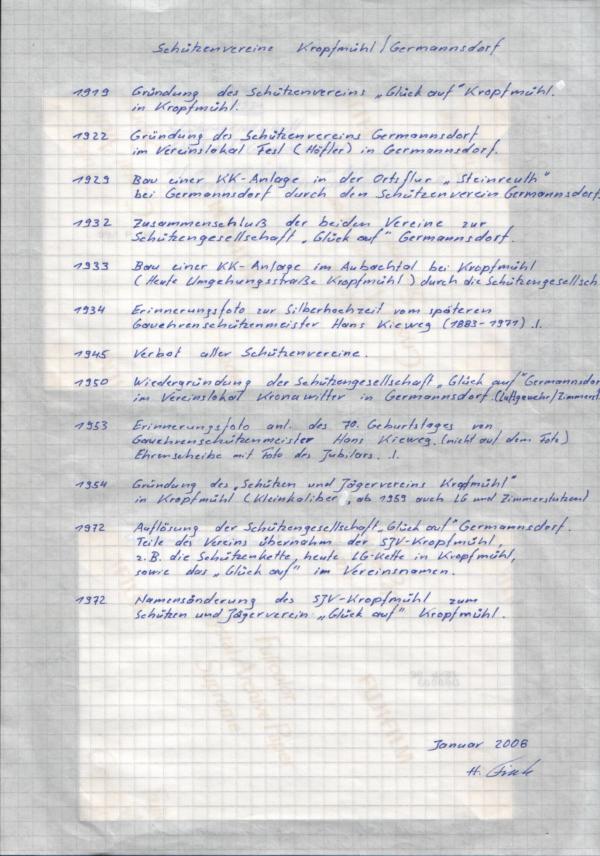 Schützenvereine Kropfmühl/Germannsdorf
1919 Gründung des Schützenvereins „Glück auf" Kropfmühl.
in Kropfmühl.
1922 Gründung des Schützenvereins Germannsdorf
im Vereinslokal Fesl (Höfler) in Germannsdorf.
1929 Bau einer KK-Anlage in der Ortsflur „Steinreuth"
bei Germannsdorf durch den Schützenverein Germannsdorf
1932 Zusammenschluß der beiden Vereine zur
Schützengesellschaft „Glück auf" Germannsdorf.
1933 Bau einer KK-Anlage im Aubachtal bei Kropfmühl
(Heute Umgehungsstraße Kropfmühl) durch die Schützengesellsch
1934 Erinnerungsfoto zur Silberhochzeit vom späteren
Gauehrenschützenmeister Hans Kieweg (1883-1971) .1.
1945 Verbot aller Schützenvereine.
1950 Wiedergründung der Schützengesellschaft „Glück auf" Germannsdor
im Vereinslokal Kronawitter in Germannsdorf. (Luftgewehr/Zimmerst
1953 Erinnerungsfoto anl. des 70. Geburtstages von
Gauehrenschützenmeister Hans Kieweg. (nicht auf dem Foto)
Ehrenscheibe mit Foto des Jubilars. .1.
1954 Gründung des „Schützen und Jägervereins Kropfmühl"
in Kropfmühl (Kleinkaliber, ab 1959 auch LG und Zimmerstutzen)
1972 Auflösung der Schützengesellschaft „Glück auf" Germannsdorf.
Teile des Vereins übernahm der SJV-Kropfmühl,
z.B. die Schützenkette, heute LG-Kette in Kropfmühl,
sowie das „Glück auf" im Vereinsnamen.
1972 Namensänderung des SJV-Kropfmühl zum
Schützen und Jägerverein „Glück auf" Kropfmühl.
FUJIFILM
Januar 2008
H.